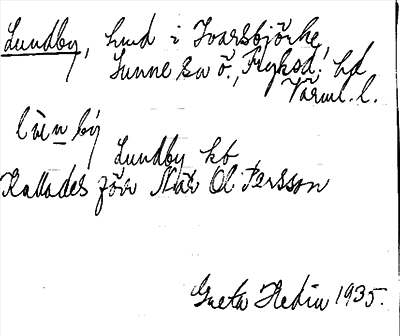 Lundby, hmd i Ivarsbjörke,
Sunne sn ö., Fryksd. hd
Värml. l.
lùn bý
Lundby kb
Kallades förr När Ol Persson
Greta Hedin 1935.